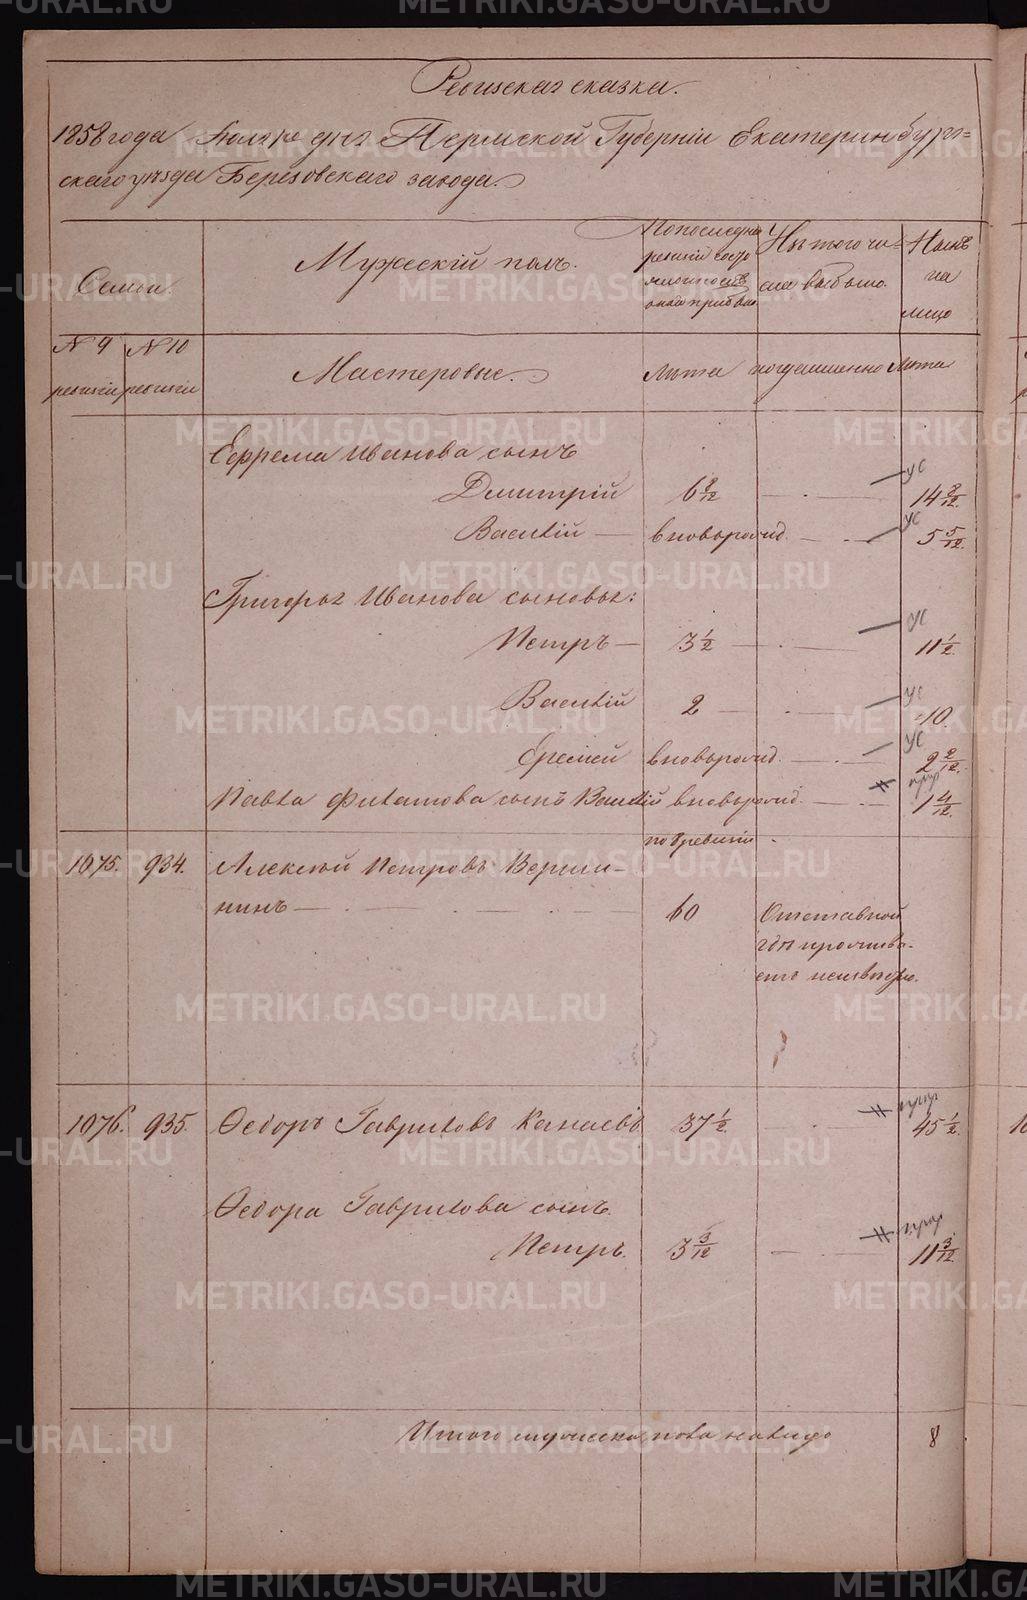 Ревизская сказка.
1858 года дня Пермской Губернiи Екатеринбург=
скаго уѣзда Березовскаго завода.
Семьи.
Мужескiй полъ.
По последней ревизiи состояло
Изъ того числа выбыло.
Нынѣ на лицо
№ 9 ревизiи
№ 10 ревизiи
Мастеровые.
Лѣта
когда именно
Лѣта
Ефрема Иванова сынъ
Дмитрiй 6 8/12 14 8/12.
Василiй — вновь рожд. 5 5/12.
Григорья Иванова сыновья:
Петръ — 3 1/2 11 1/2.
Василiй 2 10.
Еремей вновь рожд. 2 2/12.
Павла Филатова сынъ Василiй вновь рожд. 1 4/12.
1075. 934. Алексѣй Петровъ Верши-
нинъ — 60 Отставной
гдѣ прожива-
етъ неизвѣстно.
1076. 935. Ѳедоръ Гавриловъ Канаевъ 37 1/2. 45 1/2.
Ѳедора Гаврилова сынъ.
Петръ. 3 3/12 11 3/12.
Итого мужеска пола налицо 8
METRIKI.GASO-URAL.RU